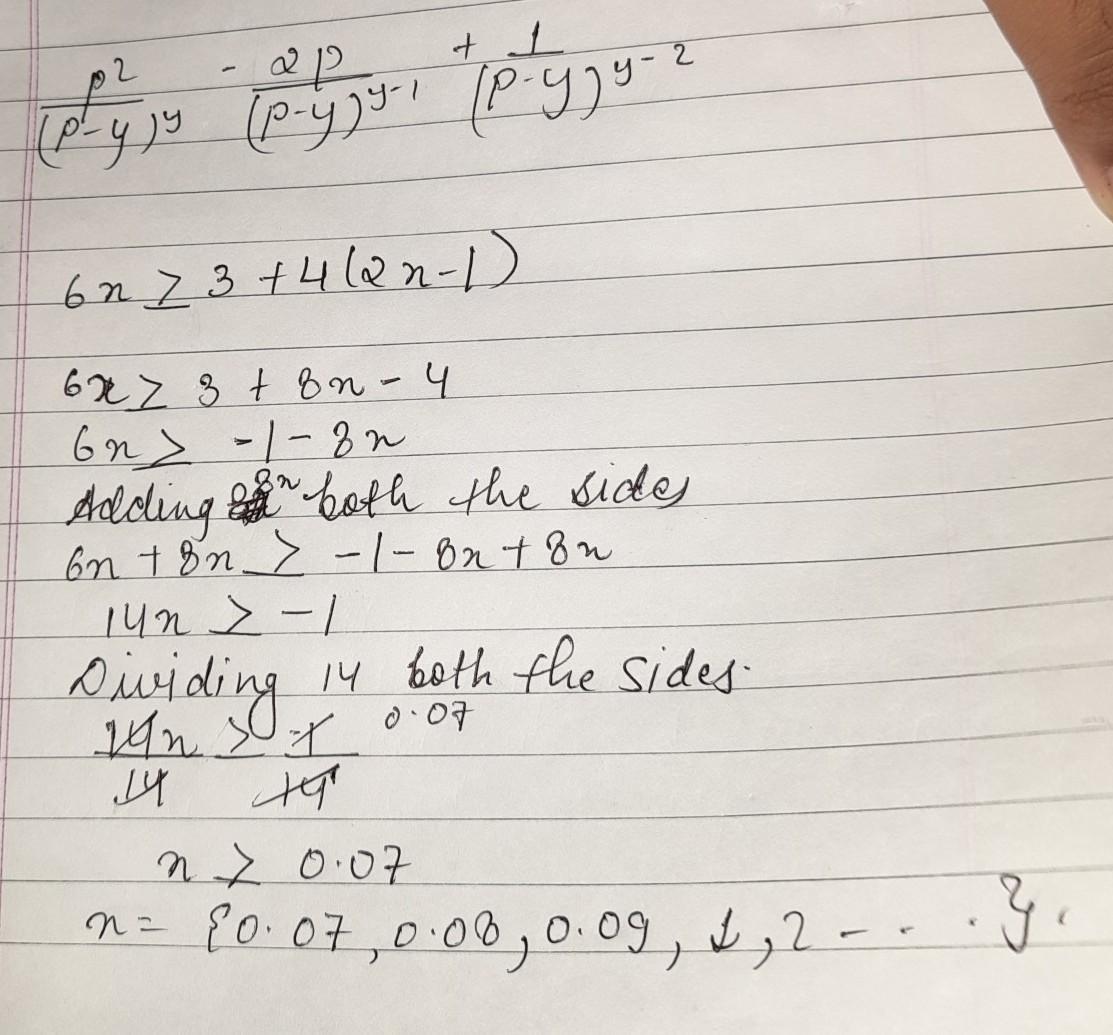 p²/(p-y)^y - 2p/(p-y)^(y-1) + 1/(p-y)^(y-2)
6x ≥ 3 + 4(2x-1)
6x ≥ 3 + 8x - 4
6x ≥ -1 - 8x
Adding 8x both the sides
6x + 8x ≥ -1 - 8x + 8x
14x ≥ -1
Dividing 14 both the sides.
14x/14 ≥ -1/14 0.07
x ≥ 0.07
x = {0.07, 0.08, 0.09, 1, 2 - - - . }.